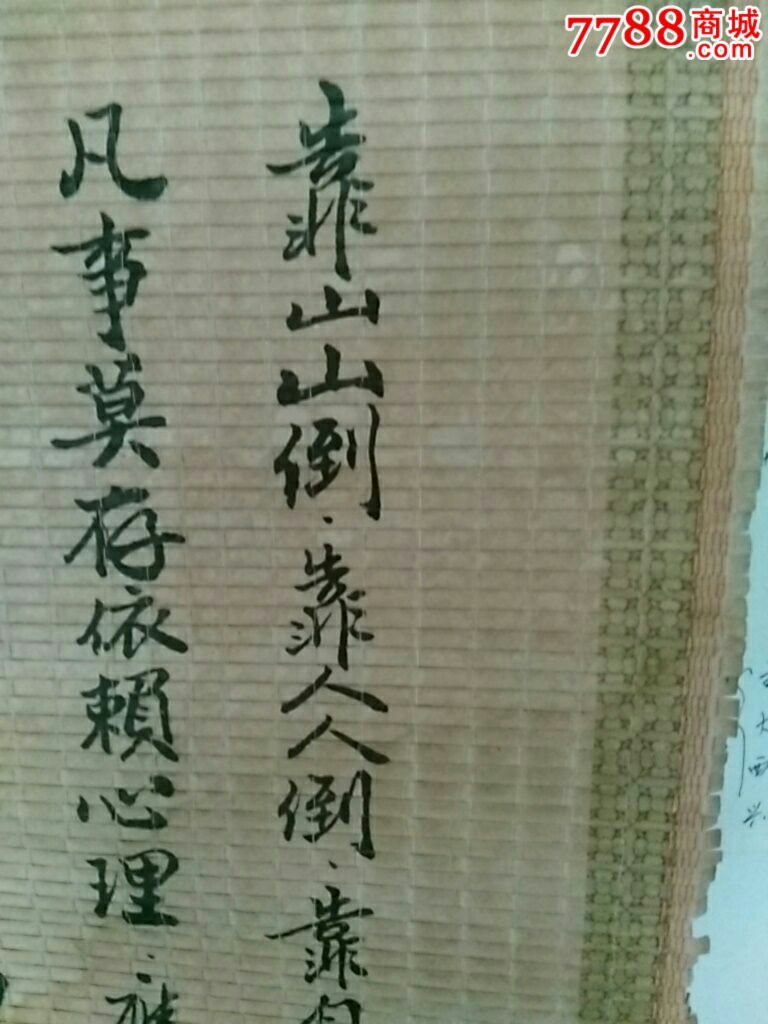 7788商城
.com
靠山山倒．靠人人倒．靠
凡事莫存依賴心理．